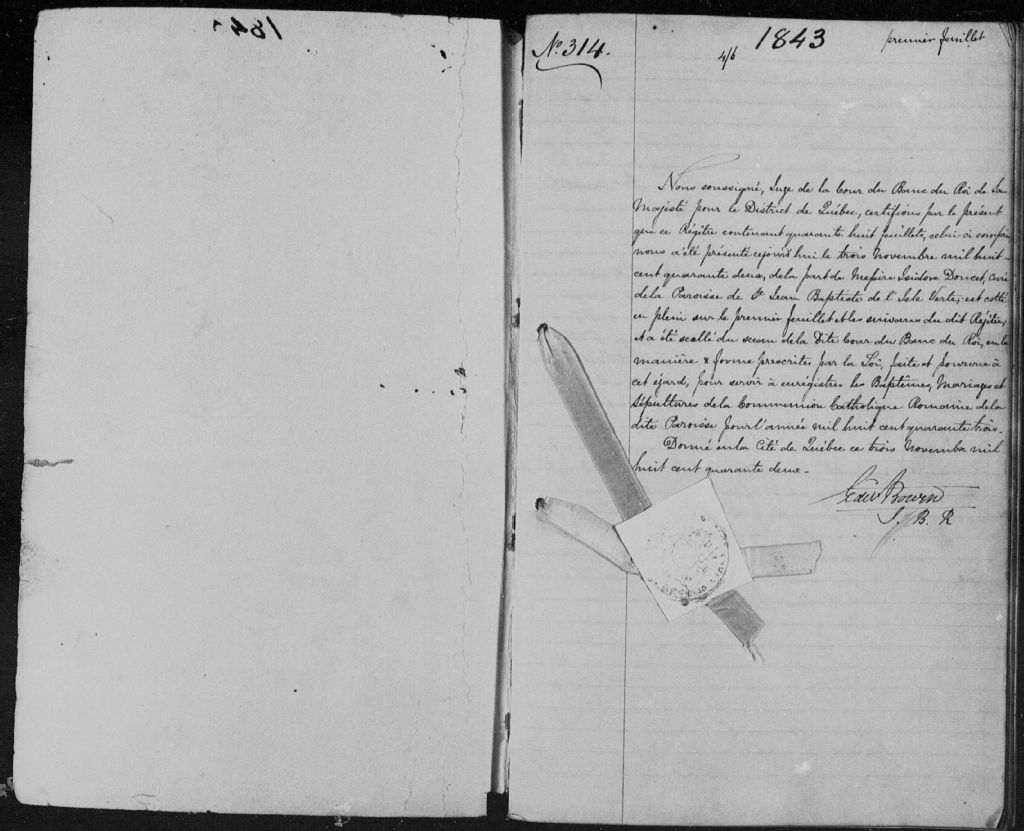 No. 314.
1843
4/6
premier feuillet
Nous soussigné, Juge de la Cour du Banc du Roi de Sa
Majesté pour le District de Québec, certifions par le présent
que ce Régître contenant quarante huit feuillets, celui-ci compris
nous a été présenté cejourd'hui le trois Novembre mil huit
cent quarante deux, de la part de Messire Isidore Doucet, Curé
de la Paroisse de St Jean Baptiste de l'Isle Verte; est cotté
en plein sur le premier feuillet et les suivans du dit Régître,
et a été scellé du sceau de la Dite Cour du Banc du Roi, en la
manière & forme prescrites par la Loi, faite et pourvue à
cet égard, pour servir à enrégistrer les Baptêmes, Mariages et
Sépultures de la Communion Catholique Romaine de la
dite Paroisse pour l'année mil huit cent quarante trois.
Donné en la Cité de Québec ce trois Novembre mil
huit cent quarante deux.
Edw Bowen
J. B. R